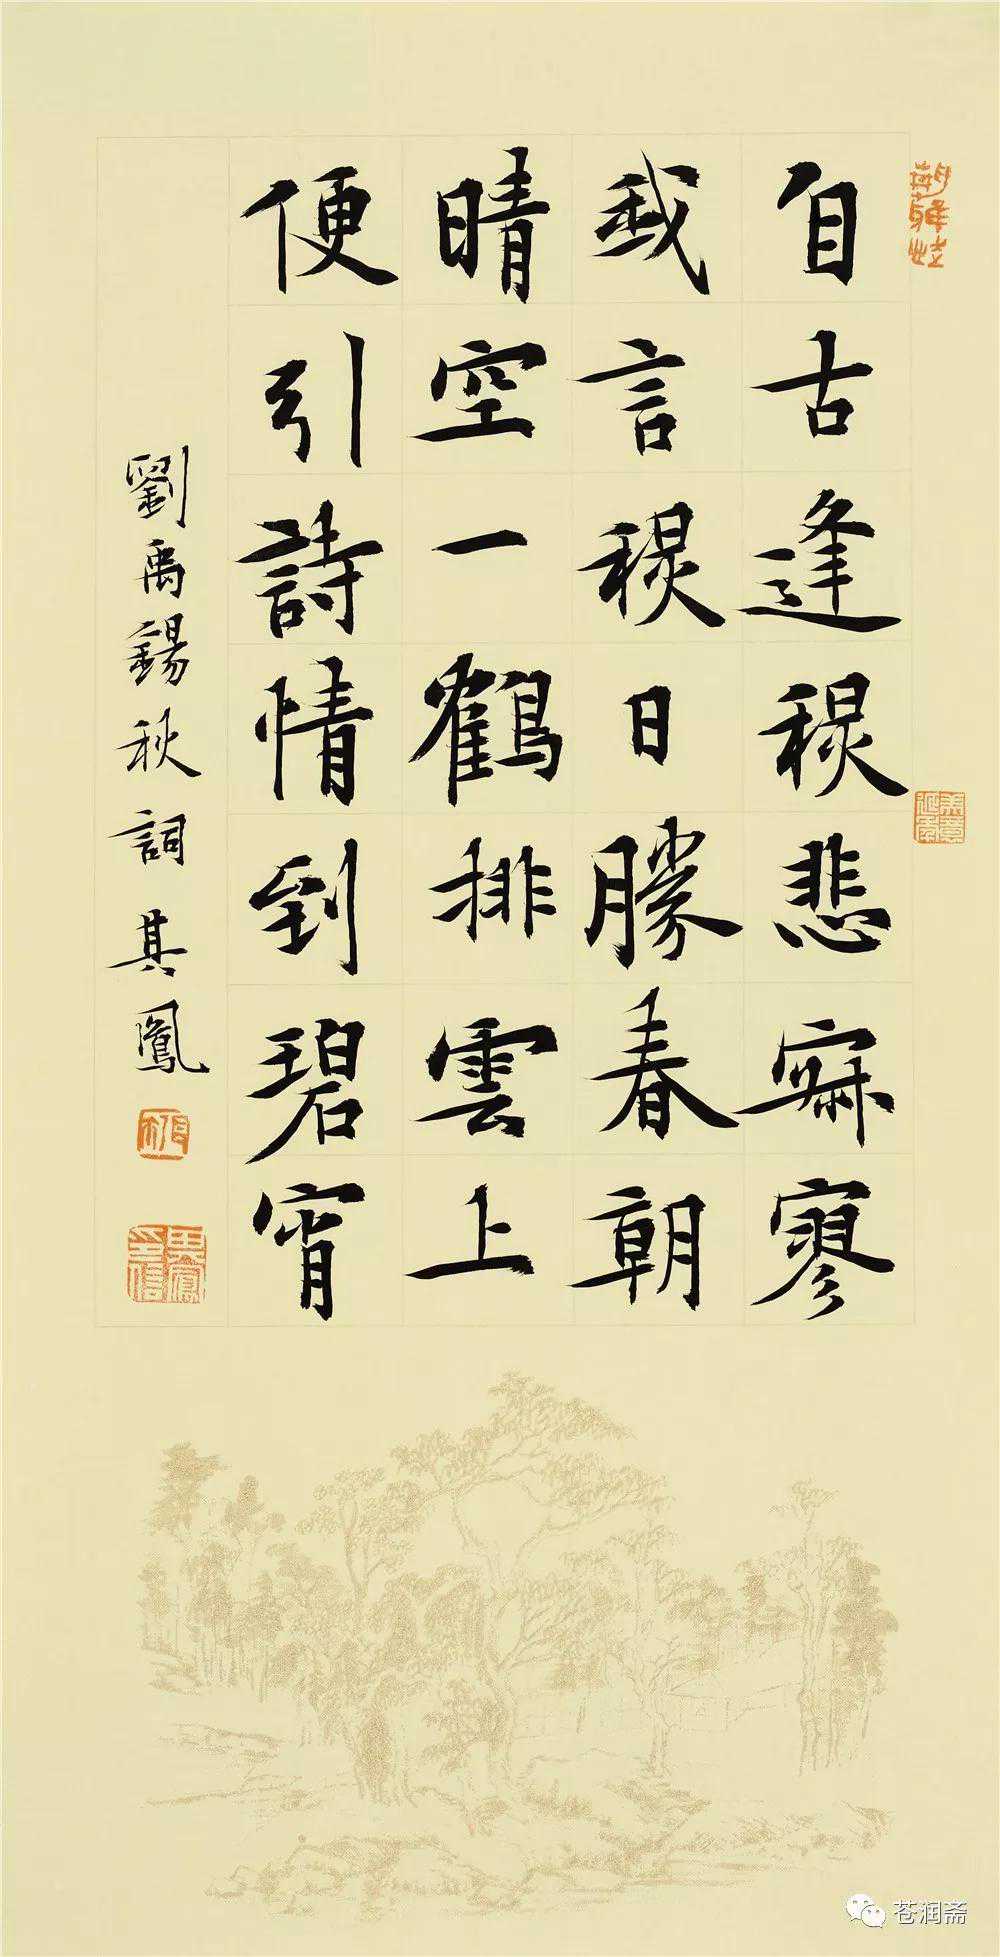 自古逢秋悲寂寥
我言秋日勝春朝
晴空一鶴排雲上
便引詩情到碧宵
劉禹錫秋詞 其鳳
其鳳印信
苍润斋